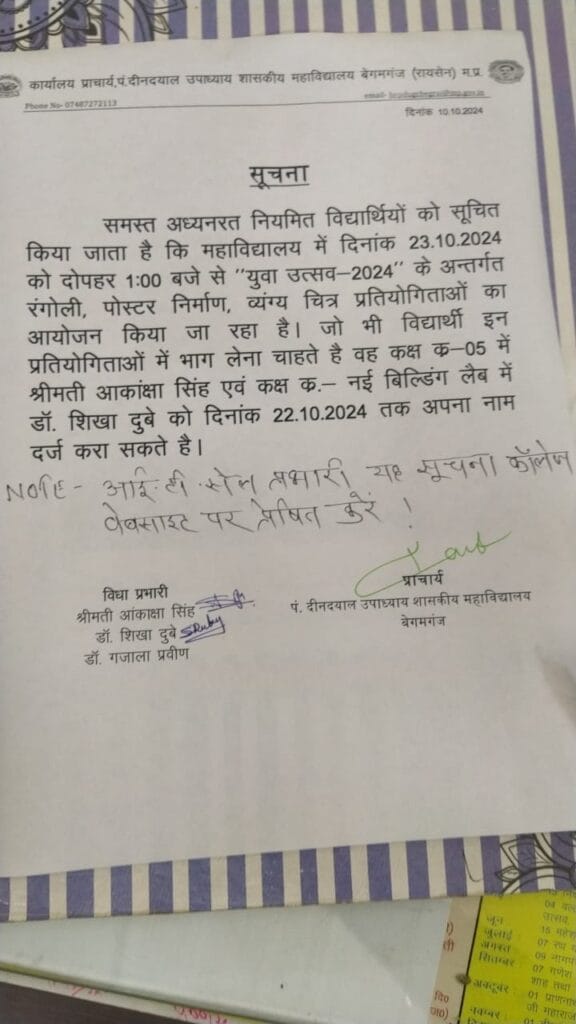 कार्यालय प्राचार्य,पं.दीनदयाल उपाध्याय शासकीय महाविद्यालय बेगमगंज (रायसेन) म.प्र.
Phone No- 07487272113
email-
दिनांक 10.10.2024
सूचना
समस्त अध्यनरत नियमित विद्यार्थियों को सूचित
किया जाता है कि महाविद्यालय में दिनांक 23.10.2024
को दोपहर 1:00 बजे से "युवा उत्सव–2024" के अन्तर्गत
रंगोली, पोस्टर निर्माण, व्यंग्य चित्र प्रतियोगिताओं का
आयोजन किया जा रहा है। जो भी विद्यार्थी इन
प्रतियोगिताओं में भाग लेना चाहते है वह कक्ष क्र–05 में
श्रीमती आकांक्षा सिंह एवं कक्ष क्र.– नई बिल्डिंग लैब में
डॉ. शिखा दुबे को दिनांक 22.10.2024 तक अपना नाम
दर्ज करा सकते है।
NOTE - आई. टी. सेल प्रभारी यह सूचना कॉलेज
वेबसाइट पर प्रेषित करें !
विधा प्रभारी
श्रीमती आंकाक्षा सिंह
डॉ. शिखा दुबे
डॉ. गजाला प्रवीण
प्राचार्य
पं. दीनदयाल उपाध्याय शासकीय महाविद्यालय
बेगमगंज
जून
जुलाई
अगस्त
सितम्बर
अक्टूबर
नवम्बर